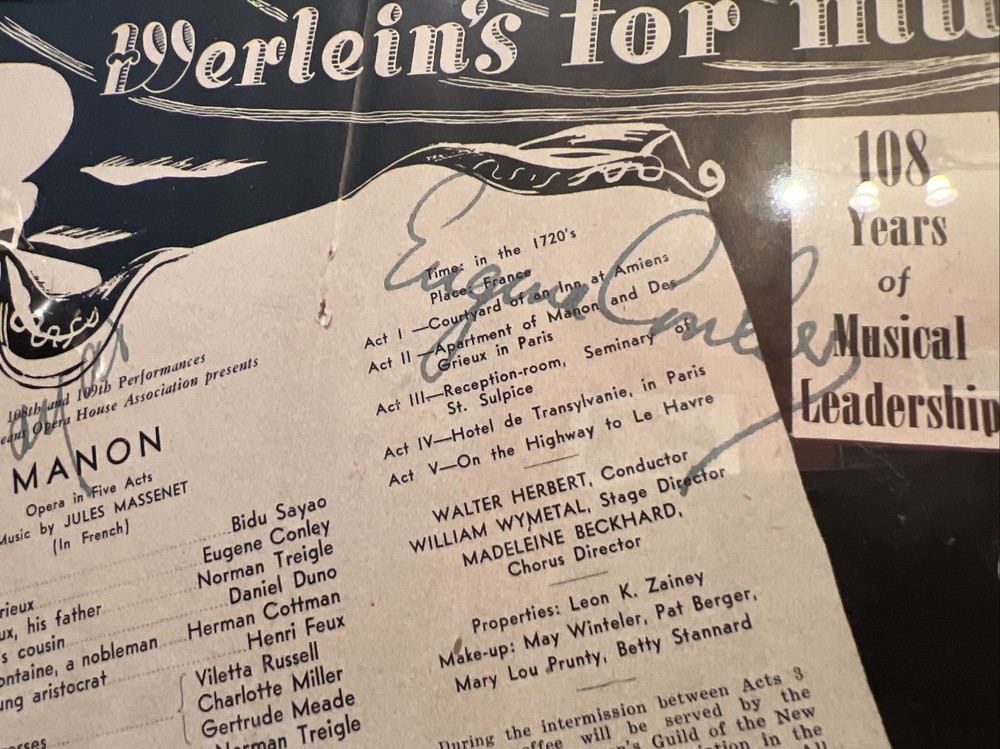 Werlein's for
108
Years
of
Musical
Leadership
Eugene Conley
Time: in the 1720's
Place: France
Act I —Courtyard of an Inn at Amiens
Act II —Apartment of Manon and Des
Grieux in Paris
Act III—Reception-room, Seminary of
St. Sulpice
Act IV—Hotel de Transylvanie, in Paris
Act V—On the Highway to Le Havre
WALTER HERBERT, Conductor
WILLIAM WYMETAL, Stage Director
MADELEINE BECKHARD,
Chorus Director
Properties: Leon K. Zainey
Make-up: May Winteler, Pat Berger,
Mary Lou Prunty, Betty Stannard
During the intermission between Acts 3
will be served by the
Guild of the New
in the
108th and 109th Performances
Opera House Association presents
MANON
Opera in Five Acts
Music by JULES MASSENET
(In French)
Bidu Sayao
Eugene Conley
rieux Norman Treigle
ux, his father Daniel Duno
's cousin Herman Cottman
ontaine, a nobleman Henri Feux
ung aristocrat Viletta Russell
Charlotte Miller
Gertrude Meade
Norman Treigle